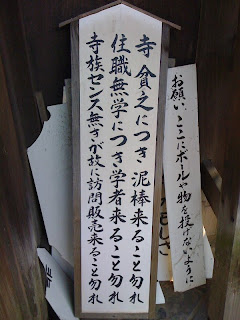 寺貧乏につき泥棒来ること勿れ
住職無学につき学者来ること勿れ
寺族センス無きが故に訪問販売来ること勿れ
お願い、ここにボールや物を投げないように